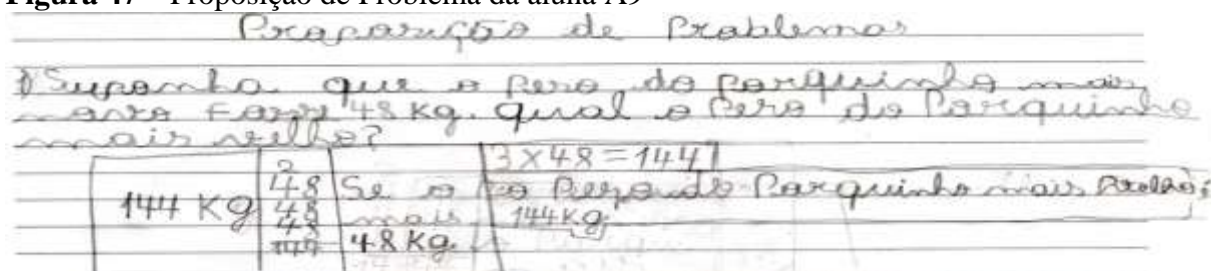 Figura 47 – Proposição de Problema da aluna A9
Proposição de Problemas
1) Suponha que o peso do porquinho mais
novo fosse 48 kg. Qual o peso do Porquinho
mais velho?
3 x 48 = 144
144 KG
2
48
48
48
144
Se o
mais
48 Kg.
o Peso do Porquinho mais
144 Kg